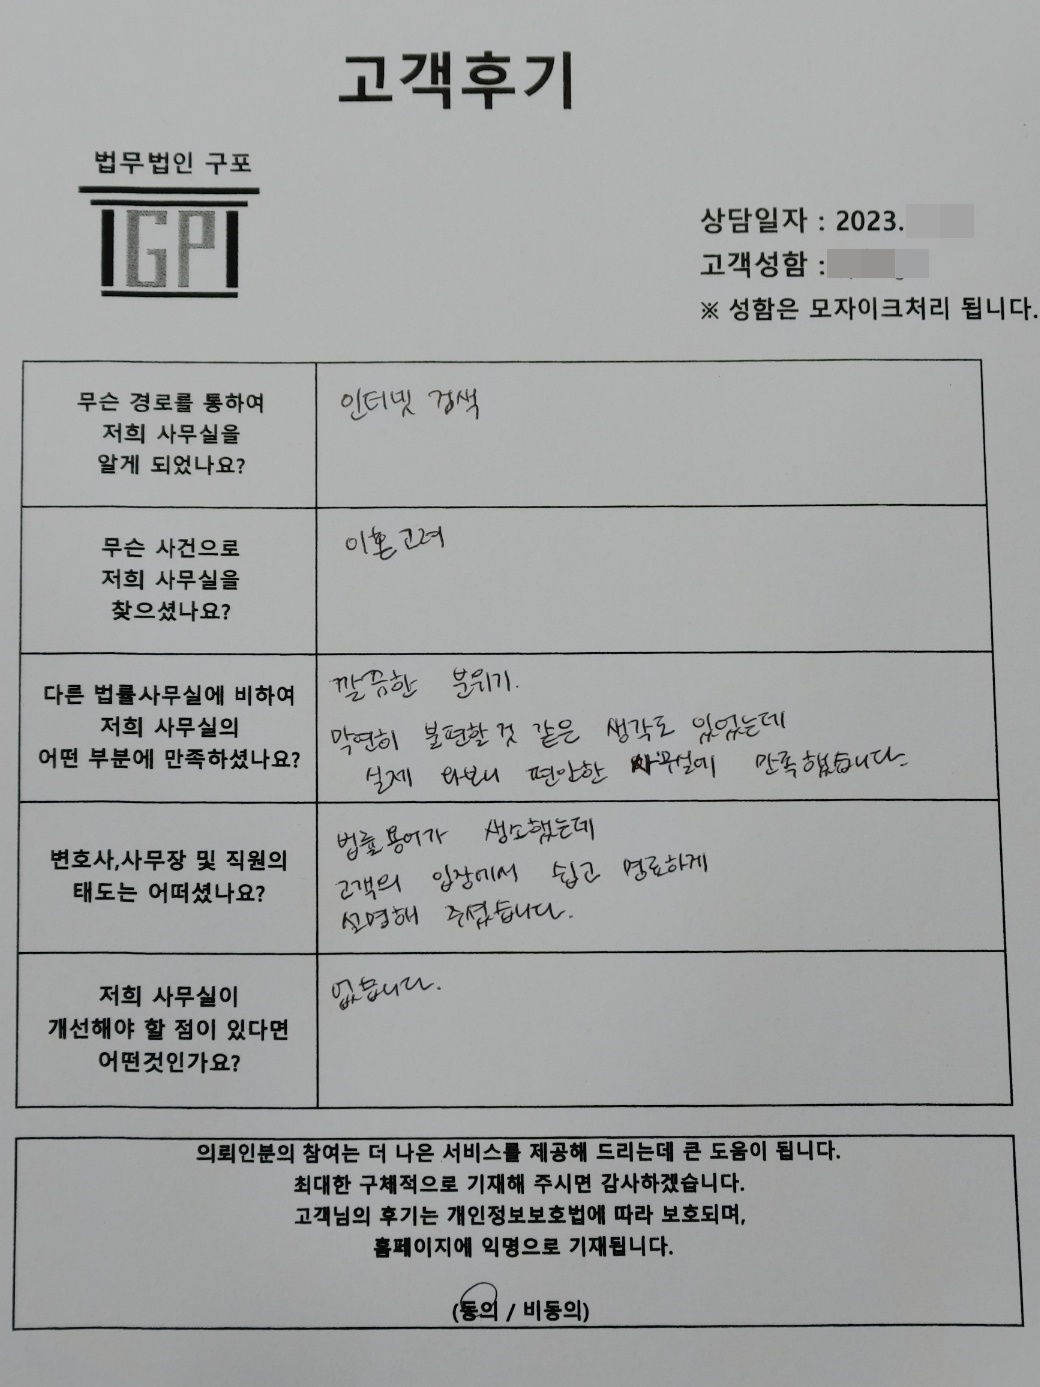 고객후기
법무법인 구포
GP
상담일자 : 2023.
고객성함 :
※ 성함은 모자이크처리 됩니다.
무슨 경로를 통하여
저희 사무실을
알게 되었나요?
인터넷 검색
무슨 사건으로
저희 사무실을
찾으셨나요?
이혼고려
다른 법률사무실에 비하여
저희 사무실의
어떤 부분에 만족하셨나요?
깔끔한 분위기.
막연히 불편할것 같은 생각도 있었는데
실제 와보니 편안한 사무실에 만족했습니다.
변호사,사무장 및 직원의
태도는 어떠셨나요?
법률용어가 생소했는데
고객의 입장에서 쉽고 명료하게
설명해 주셨습니다.
저희 사무실이
개선해야 할 점이 있다면
어떤것인가요?
없습니다.
의뢰인분의 참여는 더 나은 서비스를 제공해 드리는데 큰 도움이 됩니다.
최대한 구체적으로 기재해 주시면 감사하겠습니다.
고객님의 후기는 개인정보보호법에 따라 보호되며,
홈페이지에 익명으로 기재됩니다.
(동의 / 비동의)